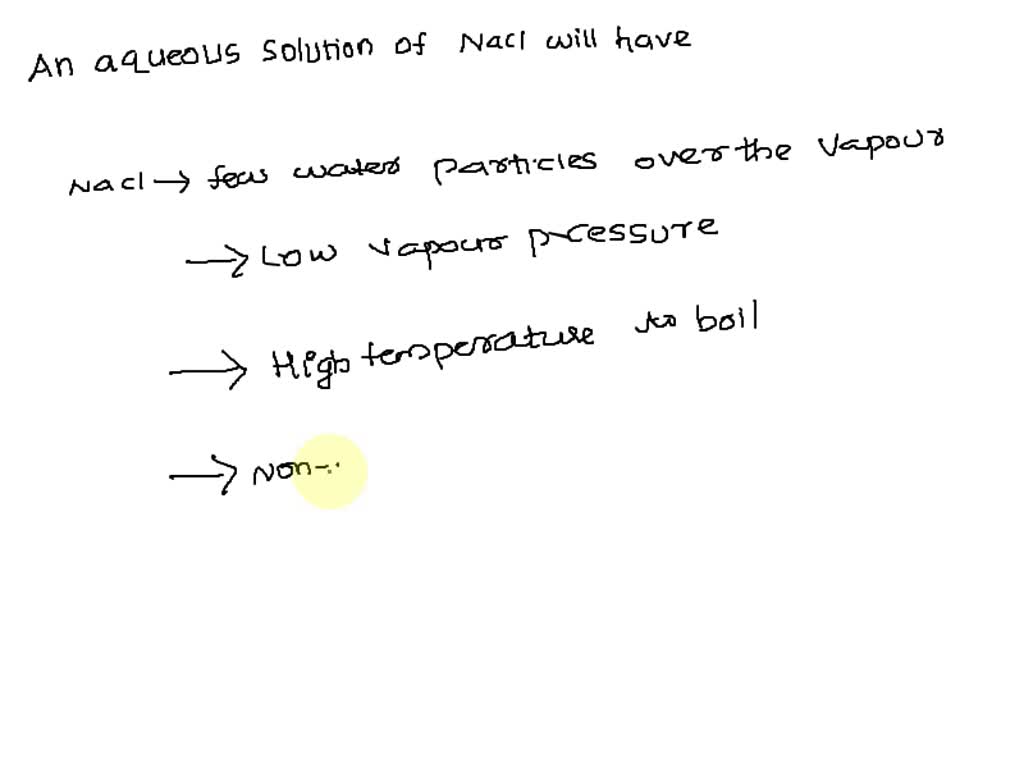 An aqueous solution of Nacl will have
Nacl → few water particles over the vapour
→ Low vapour pressure
→ High temperature to boil
→ Non-